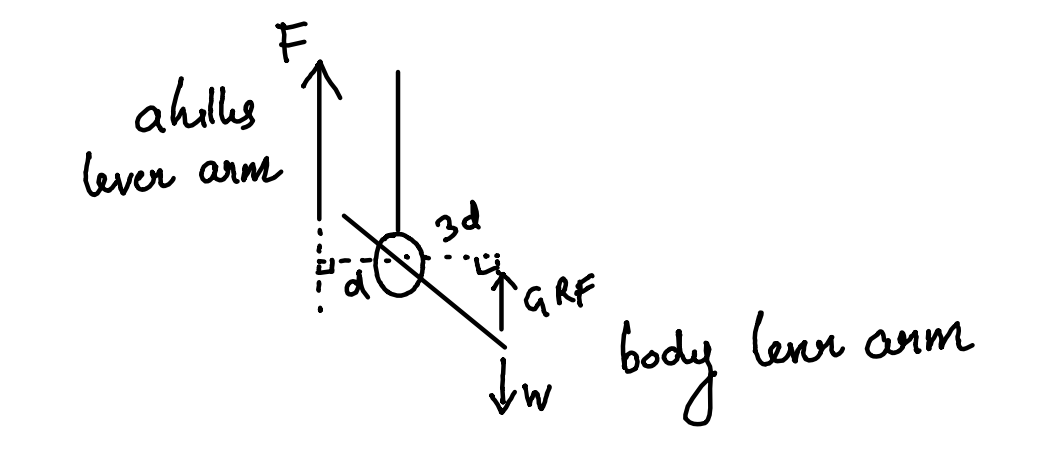 F
ahilles
lever arm
3d
d
GRF
body lever arm
W